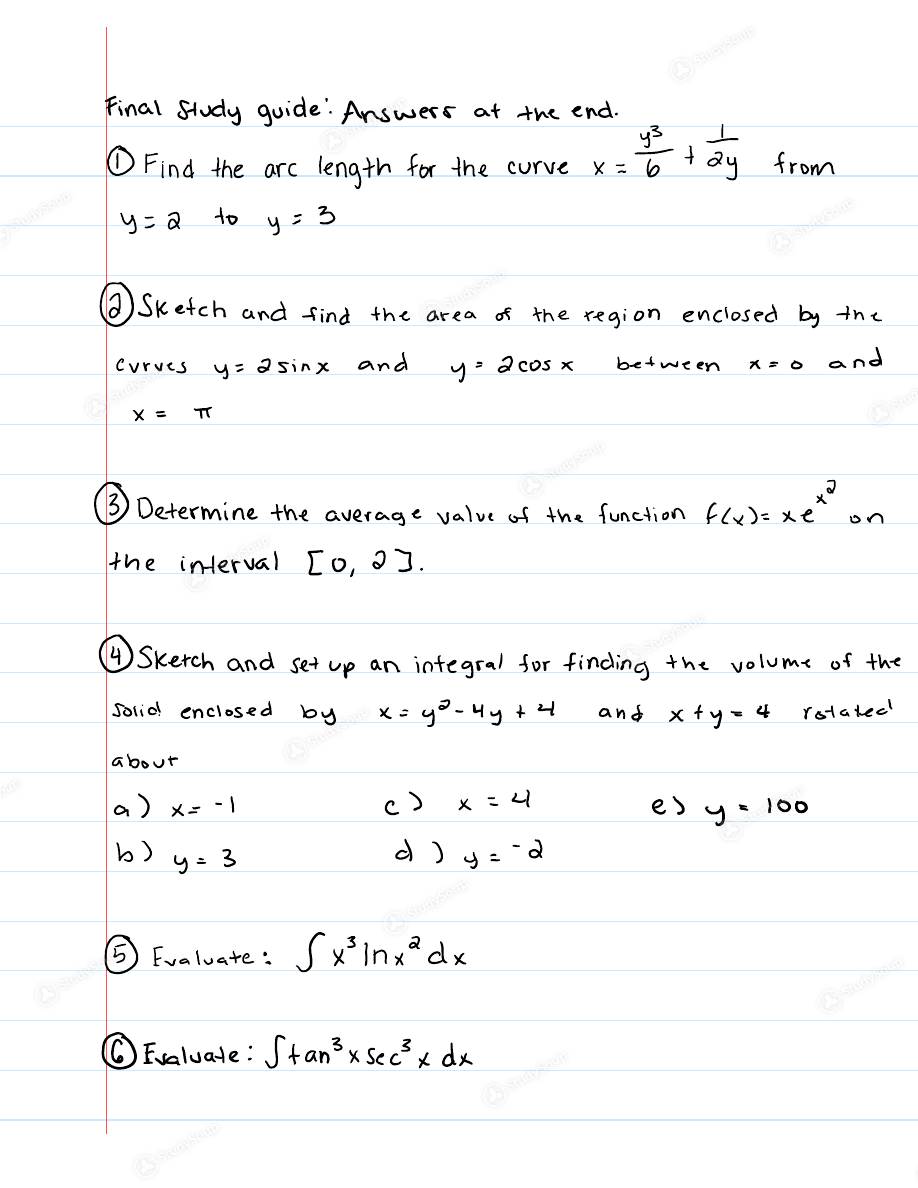 Final Study guide: Answers at the end.
① Find the arc length for the curve x = y³/6 + 1/2y from
y = 2 to y = 3
② Sketch and find the area of the region enclosed by the
curves y = 2sinx and y = 2cosx between x = 0 and
x = π
③ Determine the average value of the function f(x) = xe^x² on
the interval [0, 2].
④ Sketch and set up an integral for finding the volume of the
solid enclosed by x = y² - 4y + 4 and x + y = 4 rotated
about
a) x = -1 c) x = 4 e) y = 100
b) y = 3 d) y = -2
⑤ Evaluate: ∫ x³ lnx² dx
⑥ Evaluate: ∫ tan³x sec³x dx
StudySoup